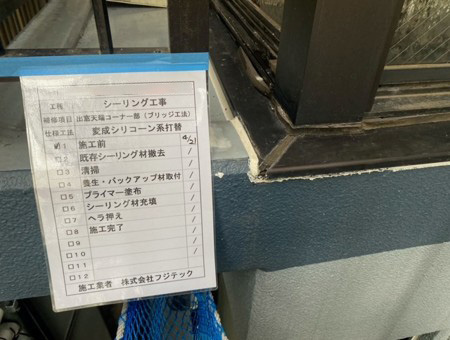 工程 シーリング工事
補修項目 出窓天端コーナー部（ブリッジ工法）
仕様工法 変成シリコーン系打替
1 施工前 9/21
□2 既存シーリング材撤去 /
□3 清掃 /
□4 養生・バックアップ材取付 /
□5 プライマー塗布 /
□6 シーリング材充填 /
□7 ヘラ押え /
□8 施工完了 /
□9 /
□10 /
□11 /
□12
施工業者 株式会社フジテック